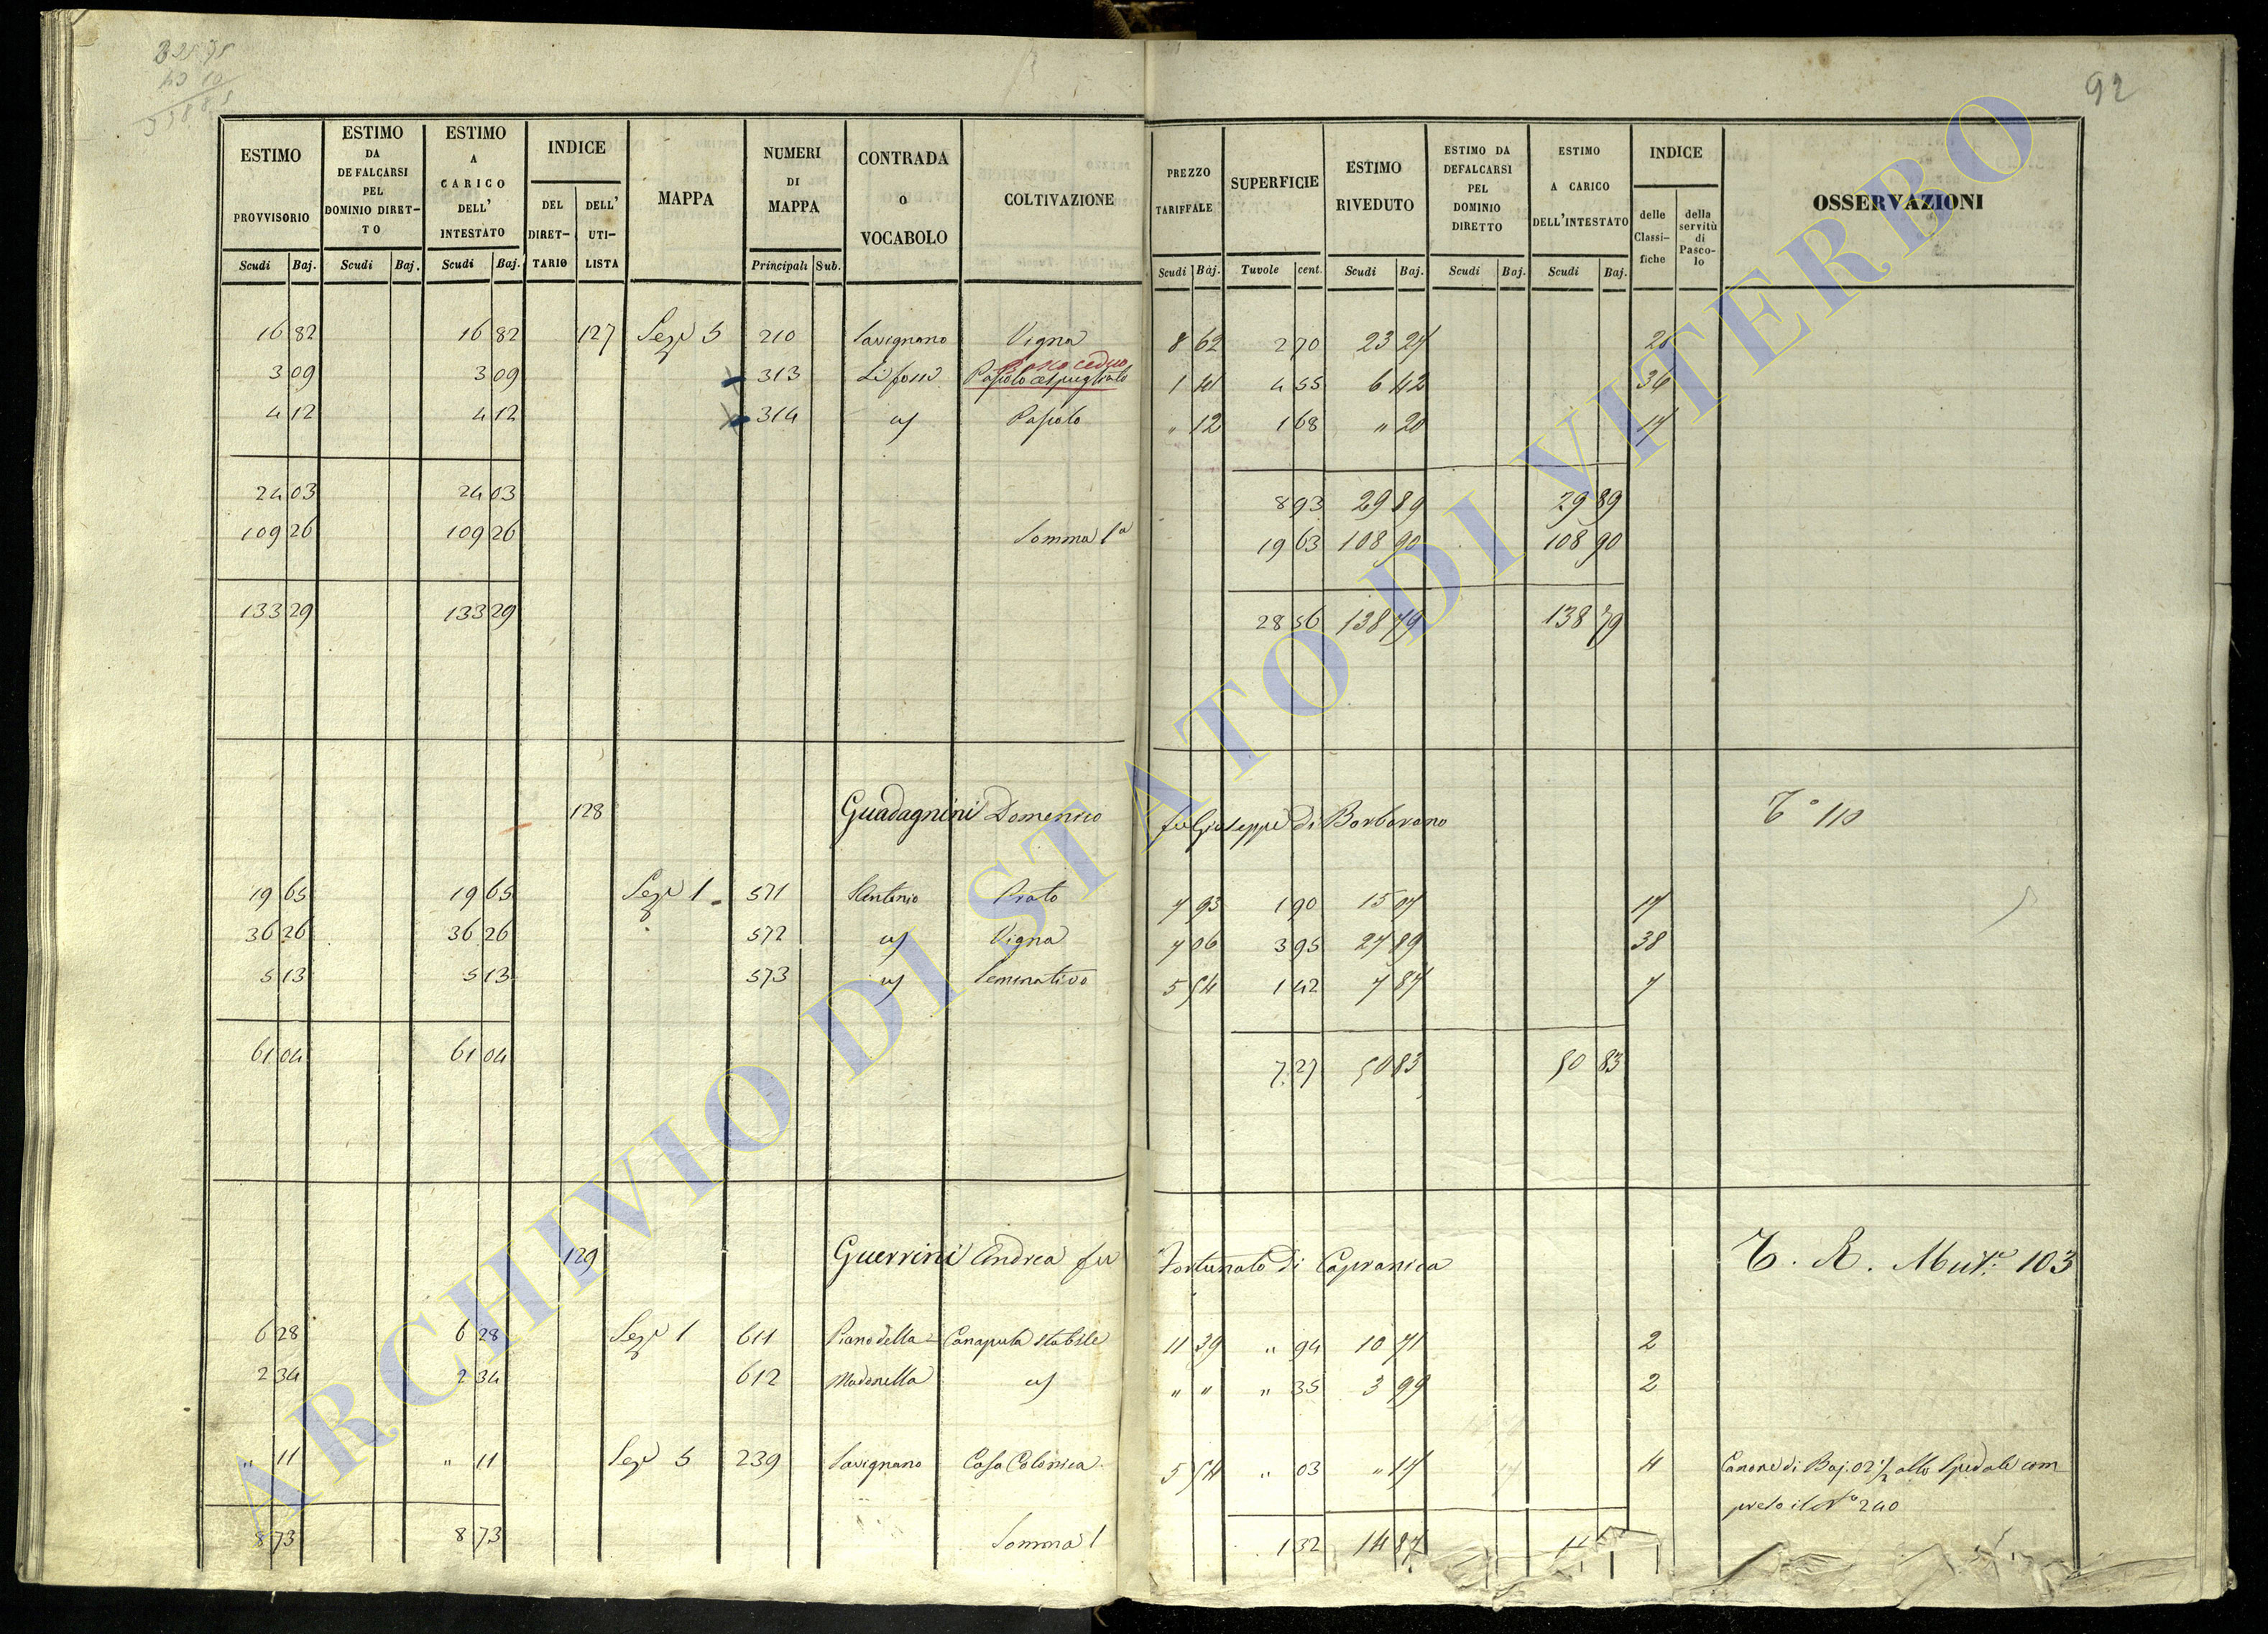 92
ESTIMO PROVVISORIO Scudi Baj.
ESTIMO DA DEFALCARSI PEL DOMINIO DIRETTO Scudi Baj.
ESTIMO A CARICO DELL' INTESTATO Scudi Baj.
INDICE DEL DIRETTARIO DELL' UTILISTA
MAPPA
NUMERI DI MAPPA Principali Sub.
CONTRADA o VOCABOLO
COLTIVAZIONE
PREZZO TARIFFALE Scudi Baj.
SUPERFICIE Tuvole cent.
ESTIMO RIVEDUTO Scudi Baj.
ESTIMO DA DEFALCARSI PEL DOMINIO DIRETTO Scudi Baj.
ESTIMO A CARICO DELL'INTESTATO Scudi Baj.
INDICE delle Classifiche della servitù di Pascolo
OSSERVAZIONI
16 82 16 82 127 Sez. 5 210 Savignano Vigna 8 62 2 70 23 27
Bosco ceduo
3 09 3 09 313 Li fossi Pascolo cespugliato 1 41 4 55 6 42 36
4 12 4 12 314 Pascolo " 12 1 68 " 20 17
24 03 24 03 8 93 29 89 29 89
109 26 109 26 Somma 1a 19 63 108 90 108 90
133 29 133 29 28 56 138 79 138 79
128 Guadagnini Domenico fu Giuseppe di Barbarano T° 110
19 65 19 65 Sez. 1 571 S Antonio Prato 7 93 1 90 15 07 17
36 26 36 26 572 Vigna 7 06 3 95 27 89 38
5 13 5 13 573 Seminativo 5 54 1 42 7 87 7
61 04 61 04 7 27 50 83 50 83
129 Guerrini Andrea fu Fortunato di Capranica T. R. Mut. 103
6 28 6 28 Sez. 1 611 Piano della Canapula stabile 11 39 " 94 10 71 2
2 34 2 34 612 Madonella " " " 35 3 99 2
" 11 " 11 Sez. 5 239 Savignano Casa Colonica 5 54 " 03 " 17 4 Canone di Baj: 02 1/2 allo Spedale com
preso il N° 240
8 73 8 73 Somma 1 1 32 14 87
ARCHIVIO DI STATO DI VITERBO